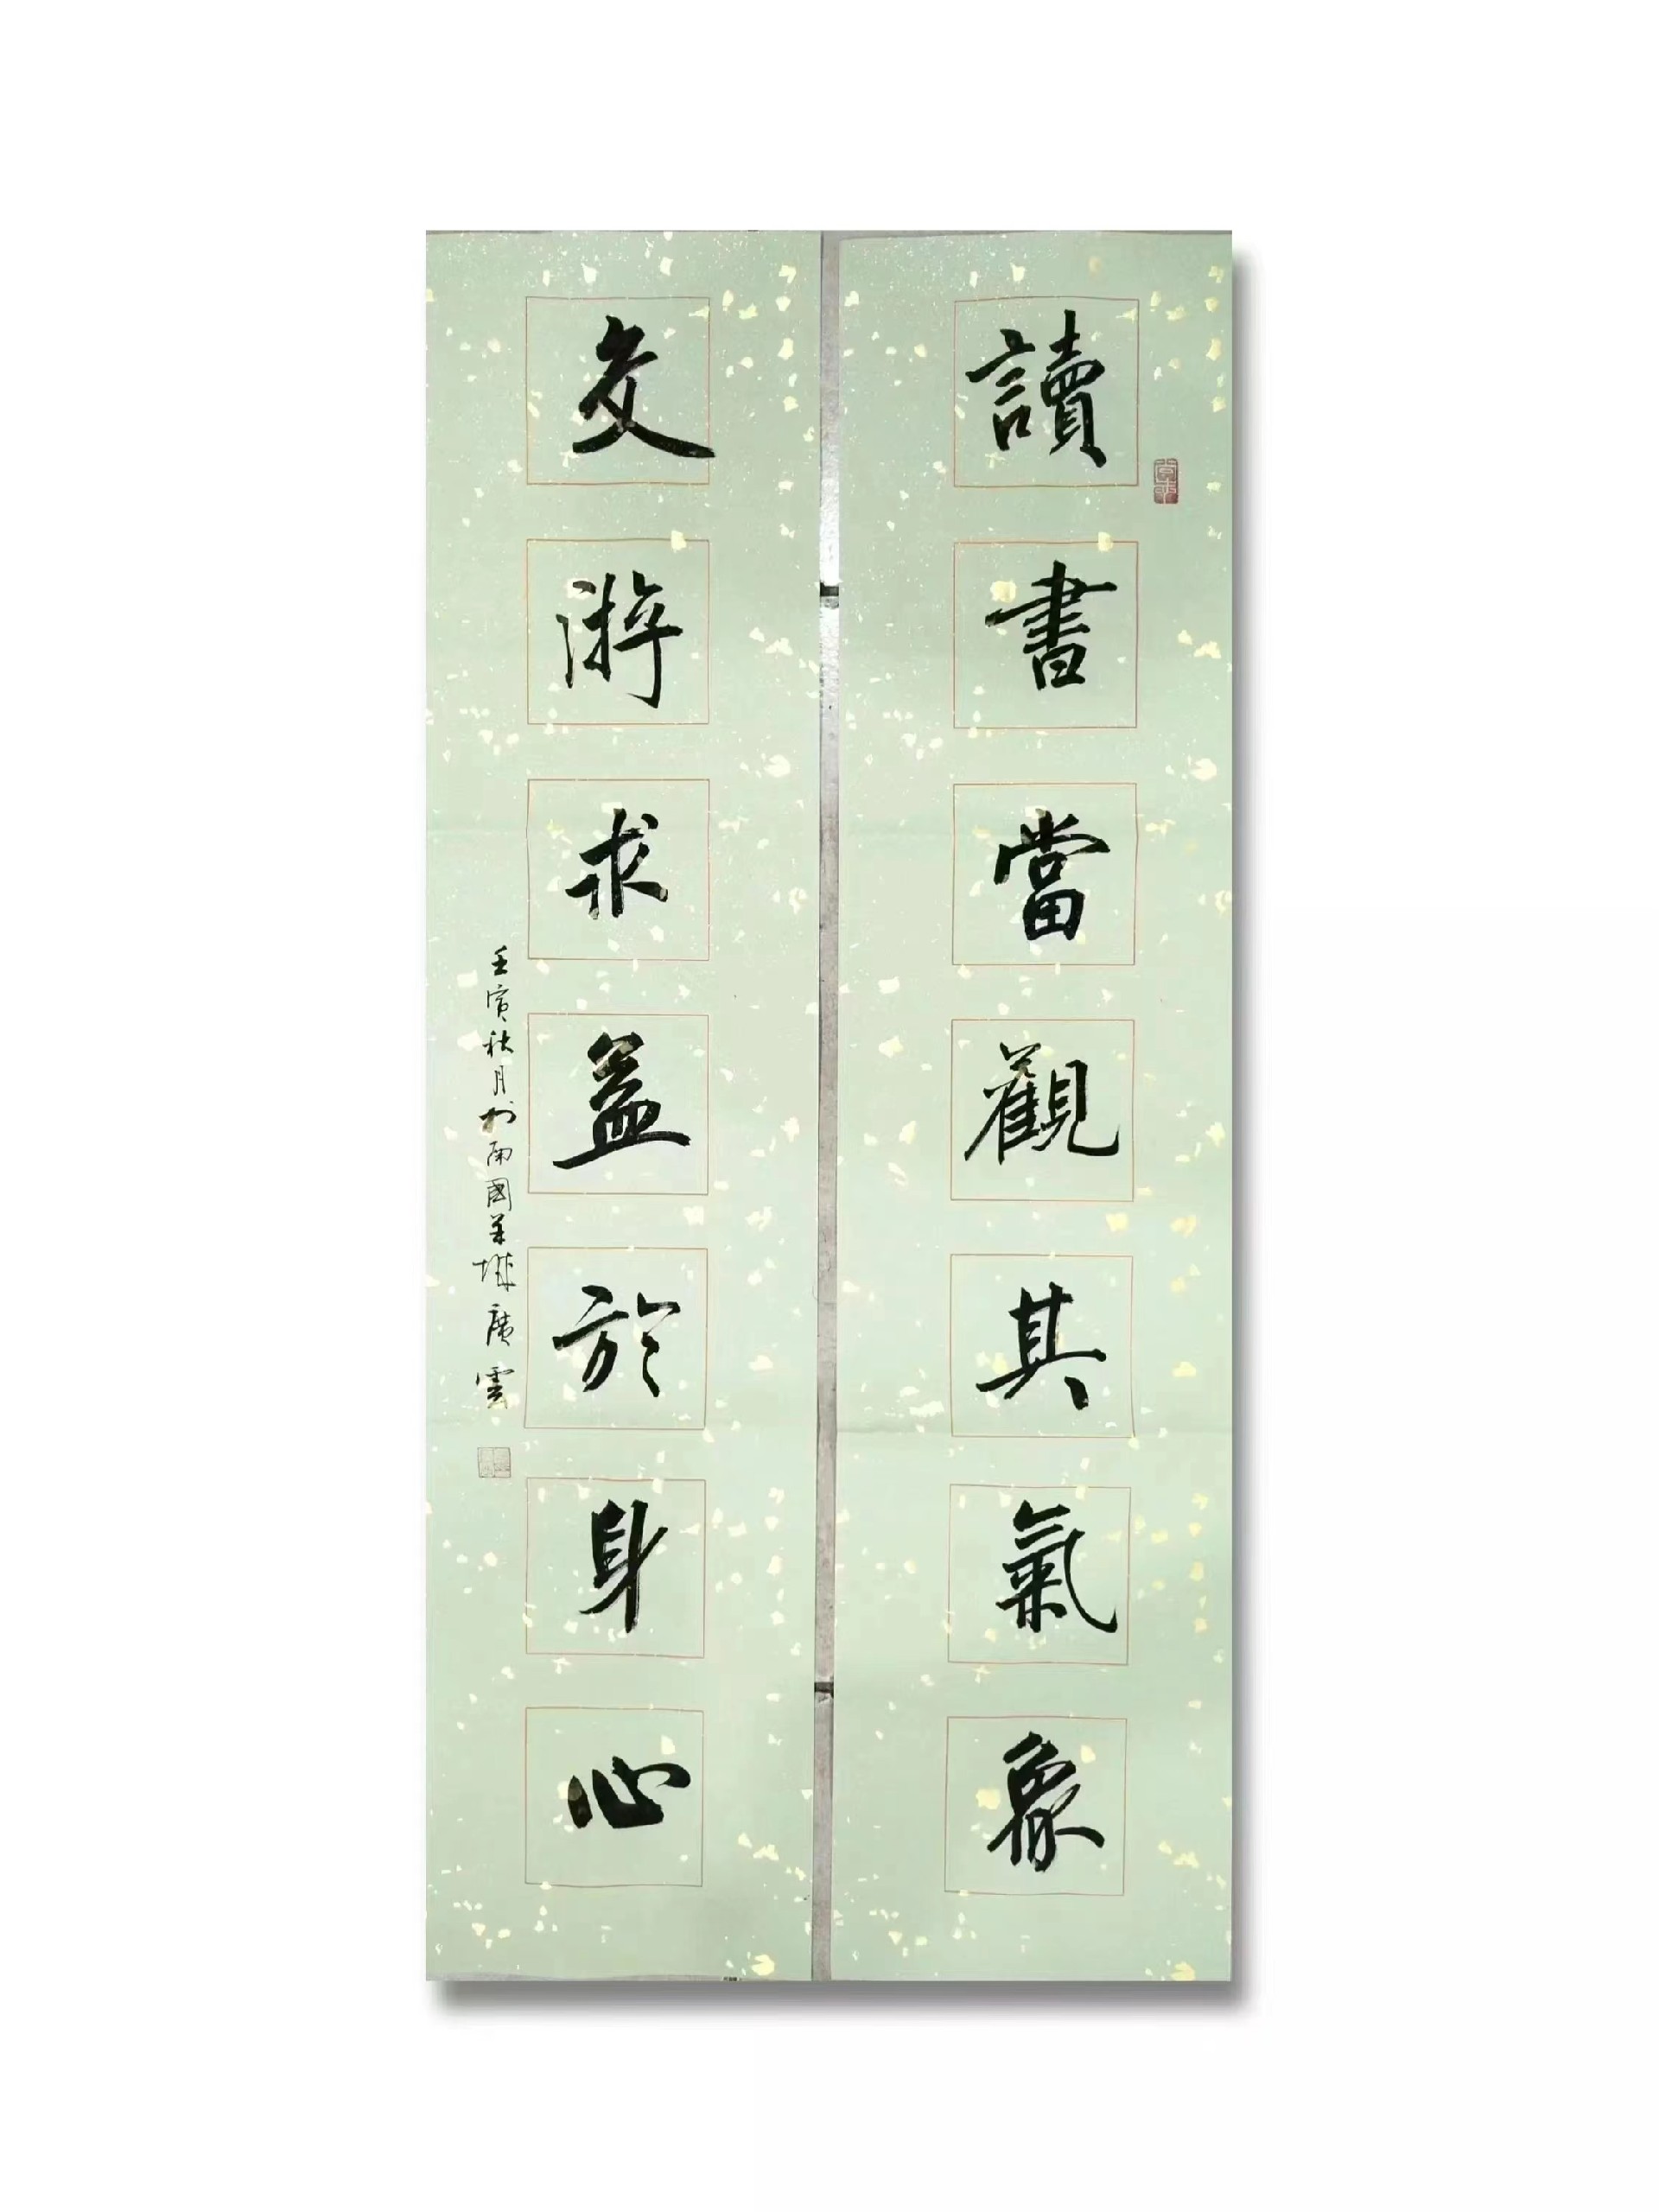 讀書當觀其氣象
交游求益於身心
壬寅秋月於南國羊城廣雲